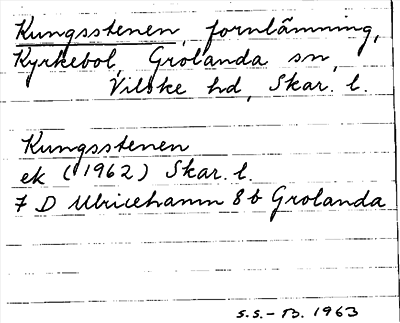 Kungsstenen, fornlämning,
Kyrkebol, Grolanda sn,
Vilske hd, Skar. l.
Kungsstenen
ek (1962) Skar. l.
7 D Ulricehamn 8 b Grolanda
S.S.-B. 1963